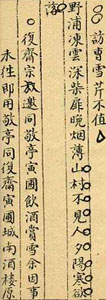 訪曹雪芹不值
野浦凍雲深柴扉晚烟薄山村不見人夕陽寒欲
落
復齋宗兄邀同敬亭寅圃飲酒賞雪余因事
未往即用敬亭同復齋寅圃城南酒樓原